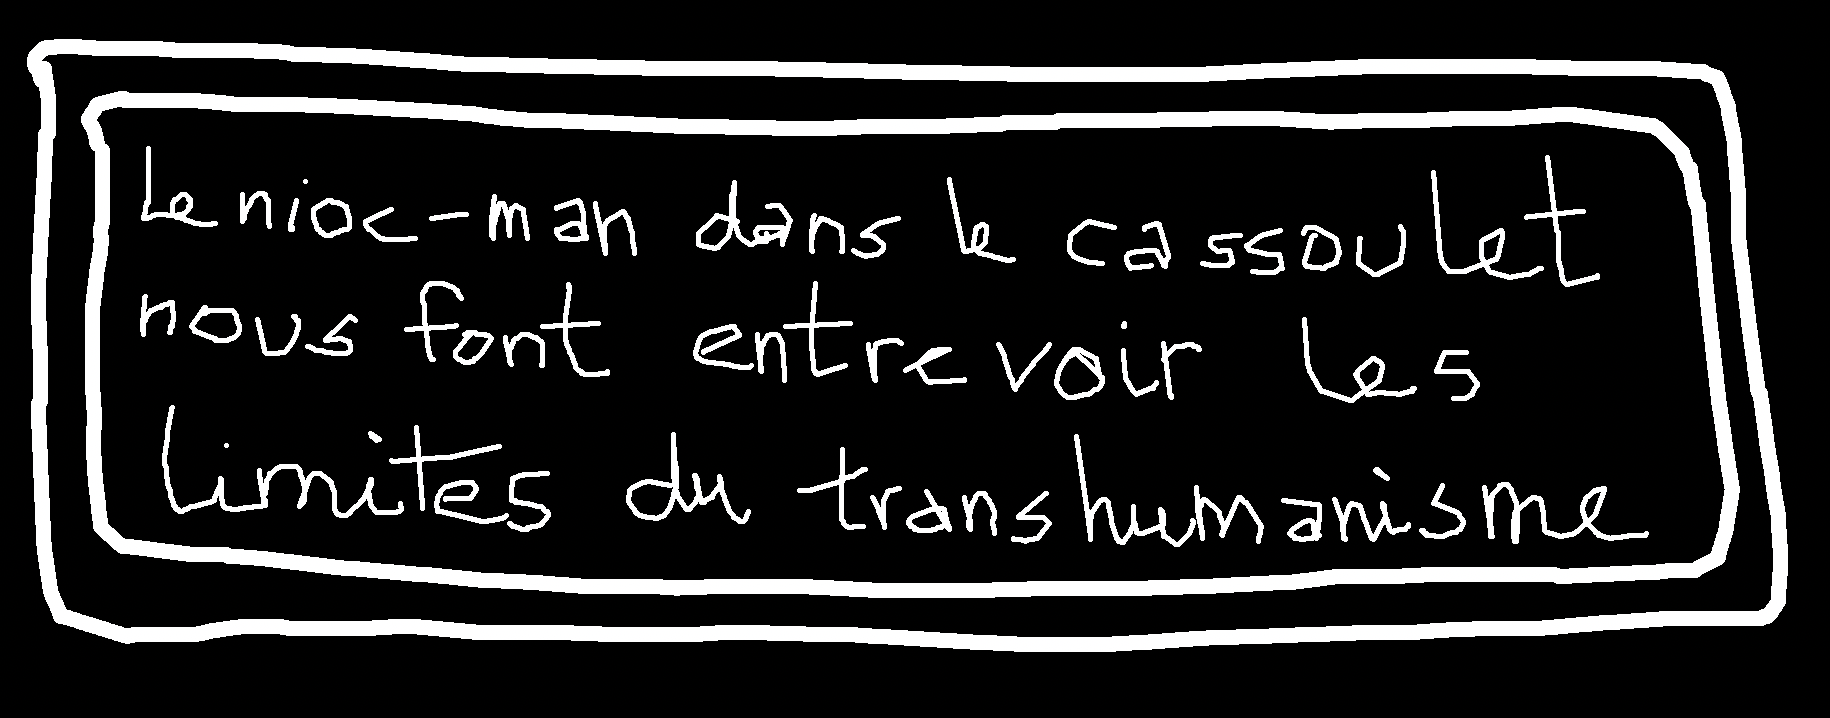 Le nioc-man dans le cassoulet
nous font entrevoir les
limites du transhumanisme